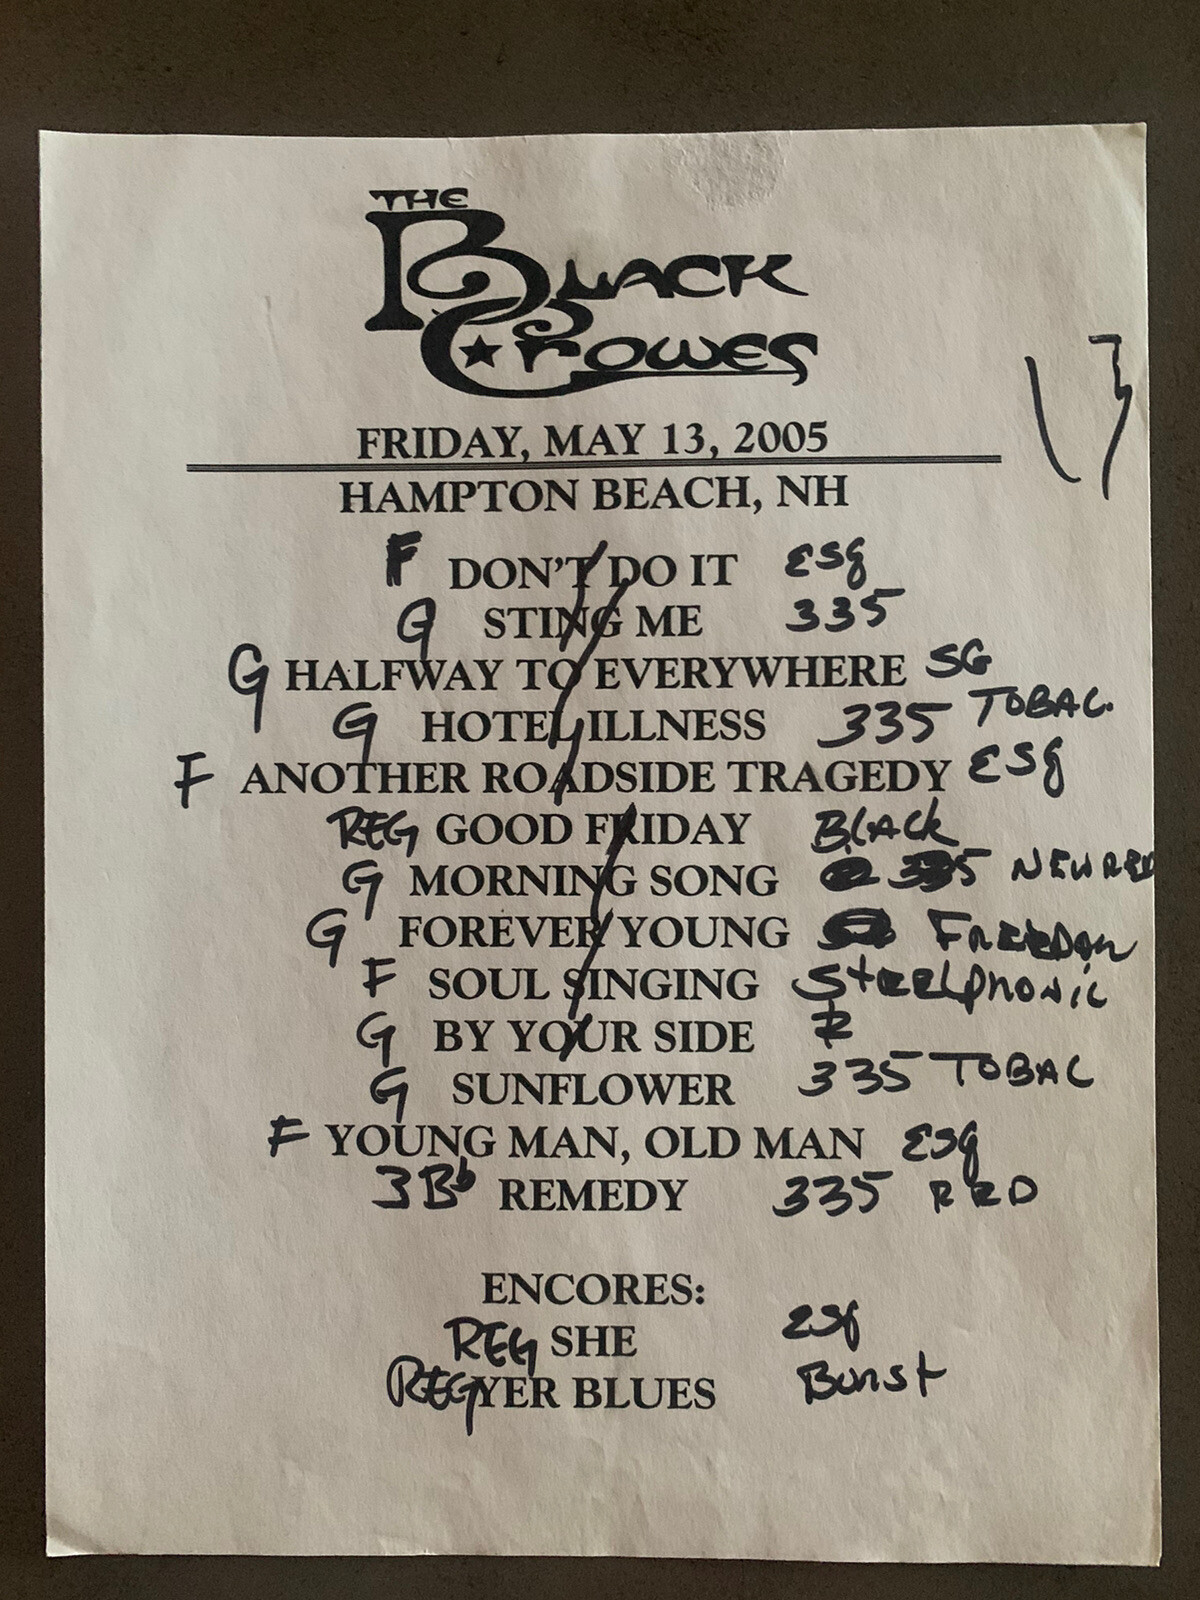 THE BLACK CROWES
FRIDAY, MAY 13, 2005
HAMPTON BEACH, NH
F DON'T DO IT ESG
G STING ME 335
G HALFWAY TO EVERYWHERE SG
G HOTEL ILLNESS 335 TOBAC.
F ANOTHER ROADSIDE TRAGEDY ESG
REG GOOD FRIDAY BLACK
G MORNING SONG 335 NEW RED
G FOREVER YOUNG FREEDOM
F SOUL SINGING STEELPHONIC
G BY YOUR SIDE
G SUNFLOWER 335 TOBAC
F YOUNG MAN, OLD MAN ESG
3 Bb REMEDY 335 RED
ENCORES:
REG SHE ESG
REG YER BLUES Burst